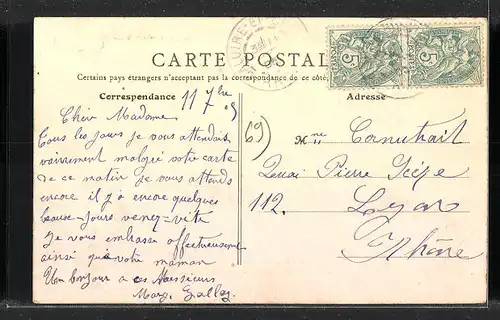 CARTE POSTALE
Certains pays étrangers n'acceptant pas la correspondance de ce côté
Correspondance
Adresse
11 7bre 05
Chère Madame
Tous les jours je vous attendais
vainement malgré votre carte
de ce matin je vous attends
encore il y a encore quelques
beaux jours venez vite
Je vous embrasse affectueusement
ainsi que votre maman
Un bonjour a ces Messieurs
Marg.
69
Mme
Quai Pierre Scize
112.
Lyon
Rhône
5
5